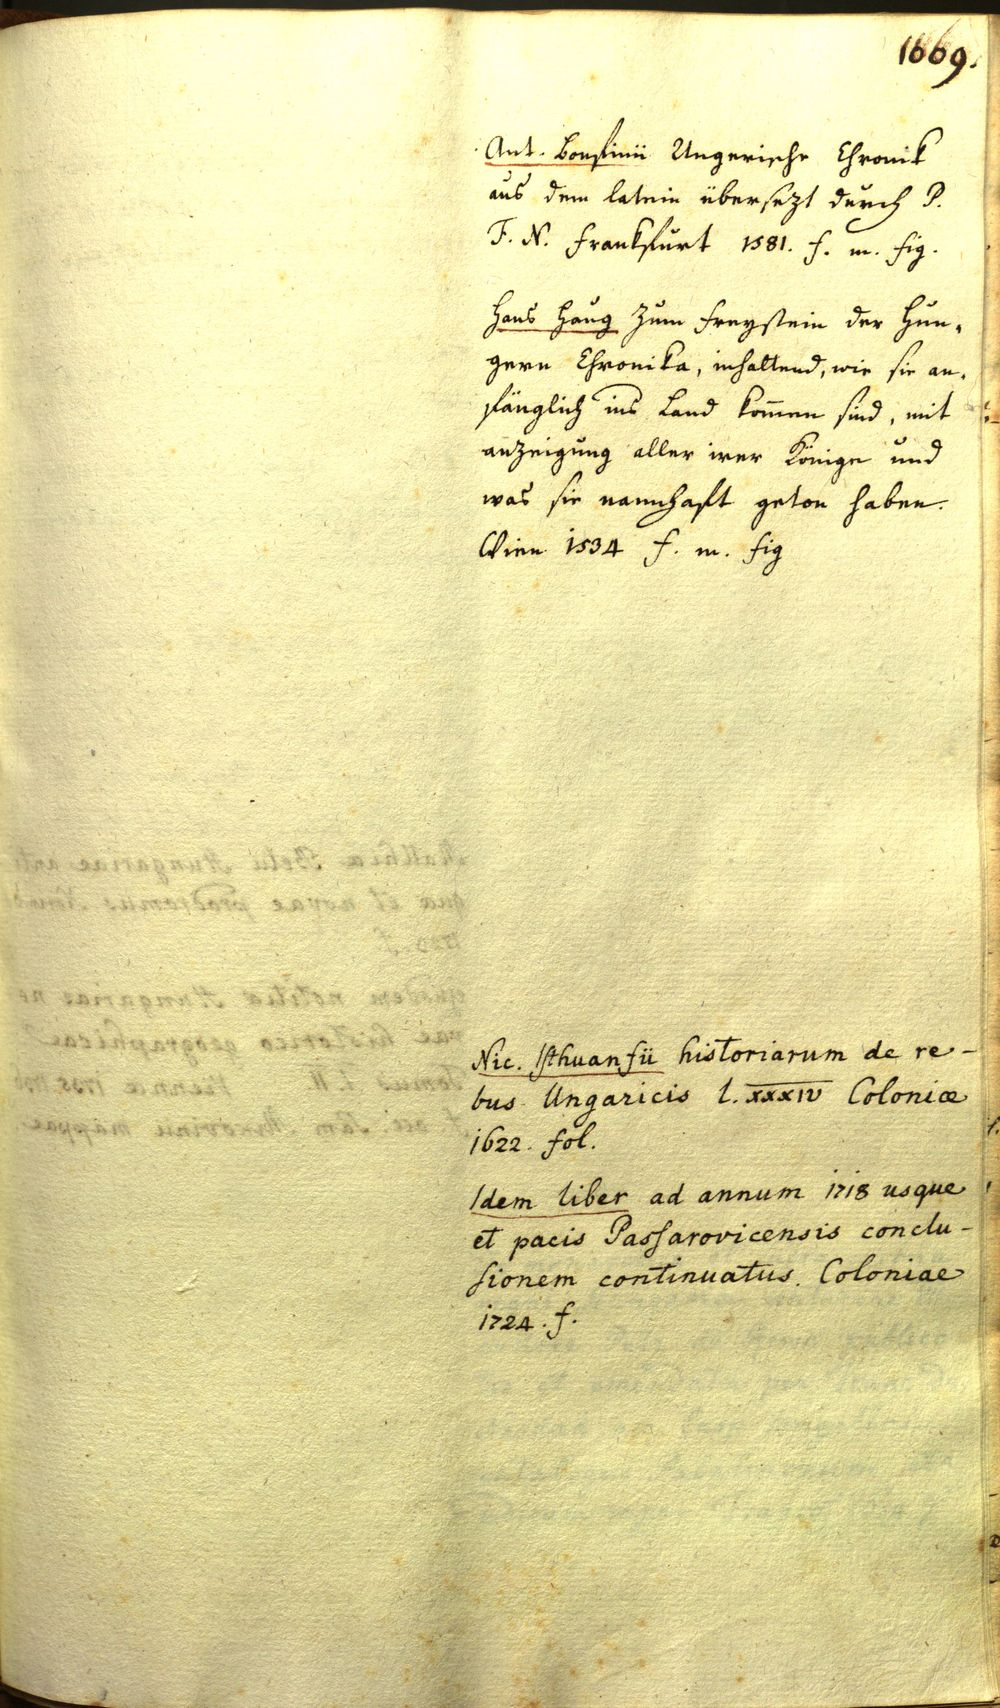 1669.
Ant. Bonfinii Ungerische Chronik
aus dem latein übersezt durch P.
F. N. Frankfurt 1581. f. m. fig.
Hans Haug zum Freystein der Hun-
gern Chronika, inhaltend, wie sie an-
fänglich ins Land kom̄en sind, mit
anzeigung aller irer Könige und
was sie namhaft geton haben.
Wien 1534 f. m. fig
Nic. Isthuanfii historiarum de re-
bus Ungaricis l. XXXIV Coloniæ
1622. fol.
Idem liber ad annum 1718 usque
et pacis Passarovicensis conclu-
sionem continuatus. Coloniae
1724. f.